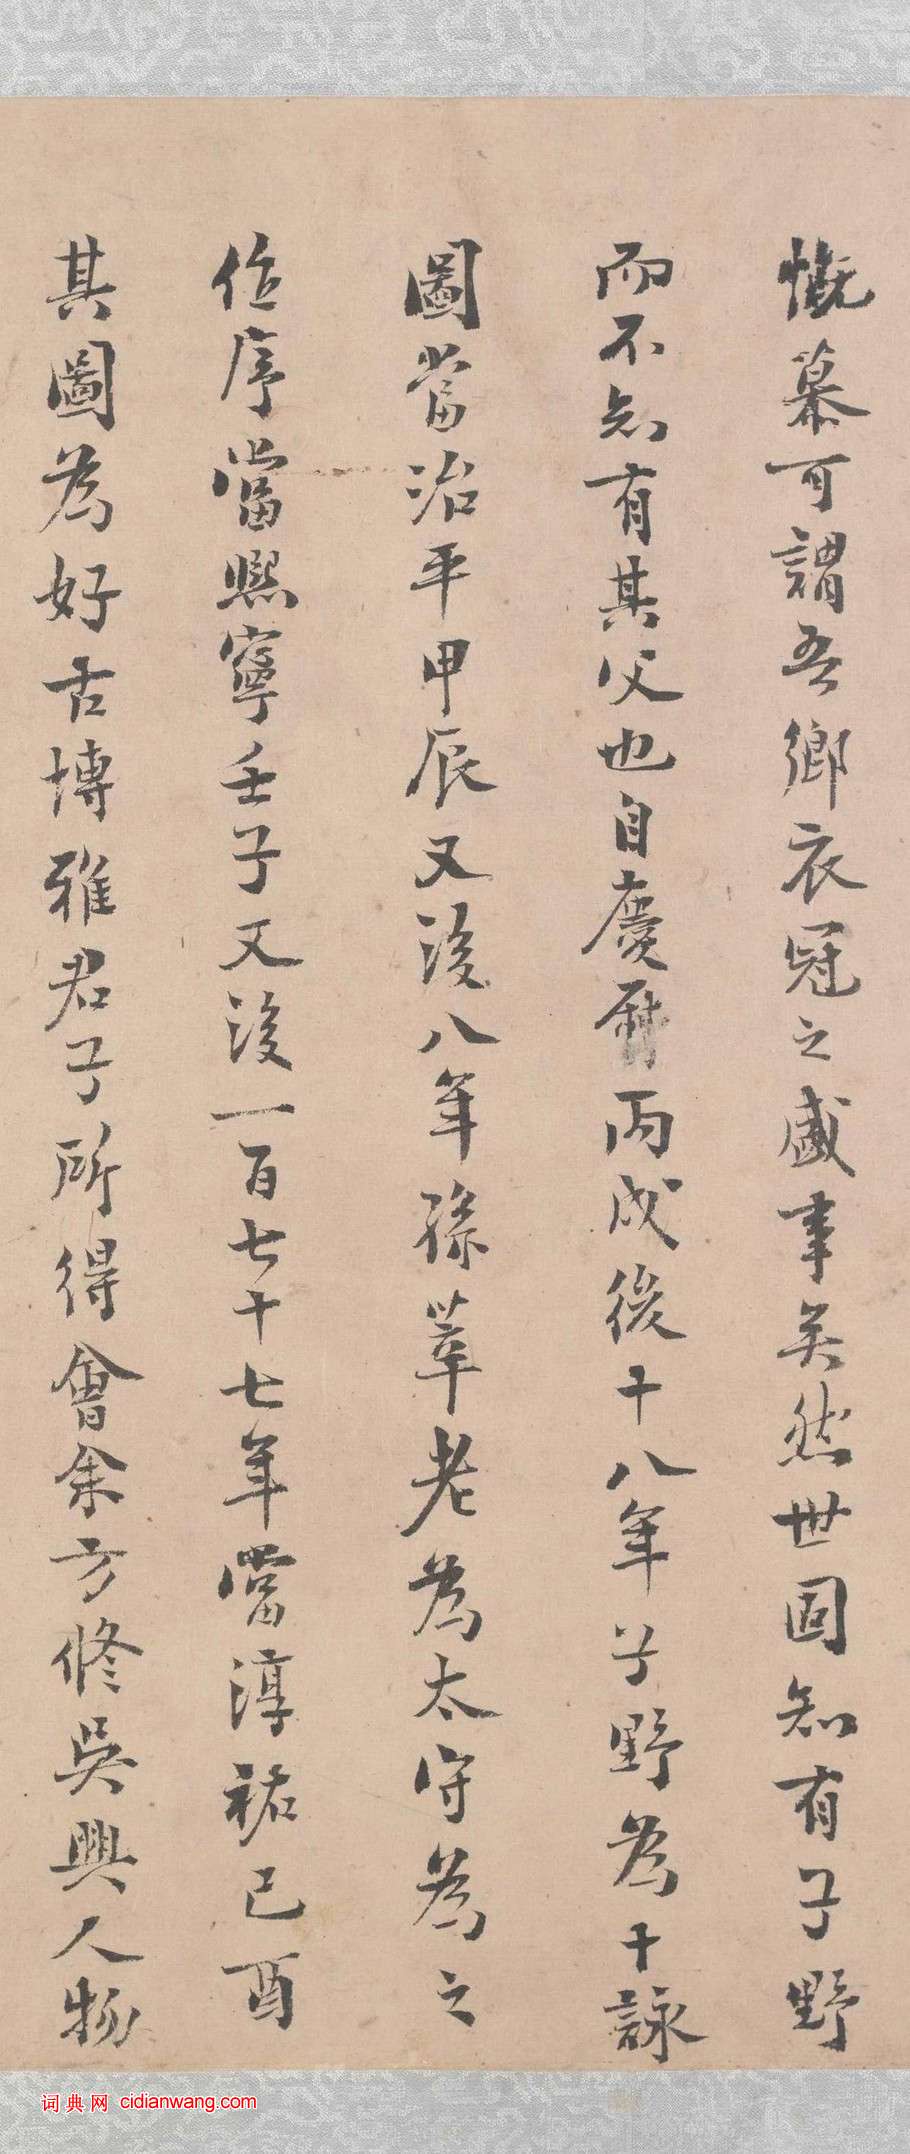 慨慕可謂吾鄉衣冠之盛事矣然世固知有子野
而不知有其父也自慶曆丙戌後十八年子野為十詠
圖當治平甲辰又後八年孫莘老為太守為之
位序當熙寧壬子又後一百七十七年當淳祐己酉
其圖為好古博雅君子所得會余方修吳興人物
词典网 cidianwang.com